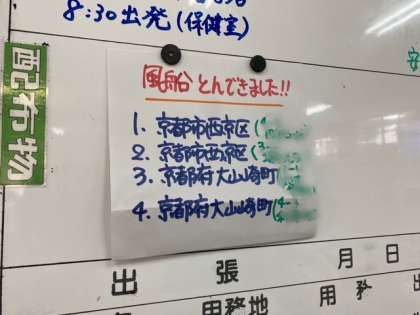 8:30出発(保健室)
配布物
風船 とんできました!!
1. 京都市西京区(4
2. 京都市西京区(3
3. 京都府大山崎町
4. 京都府大山崎町(4
出張 月 日
用務地 用務